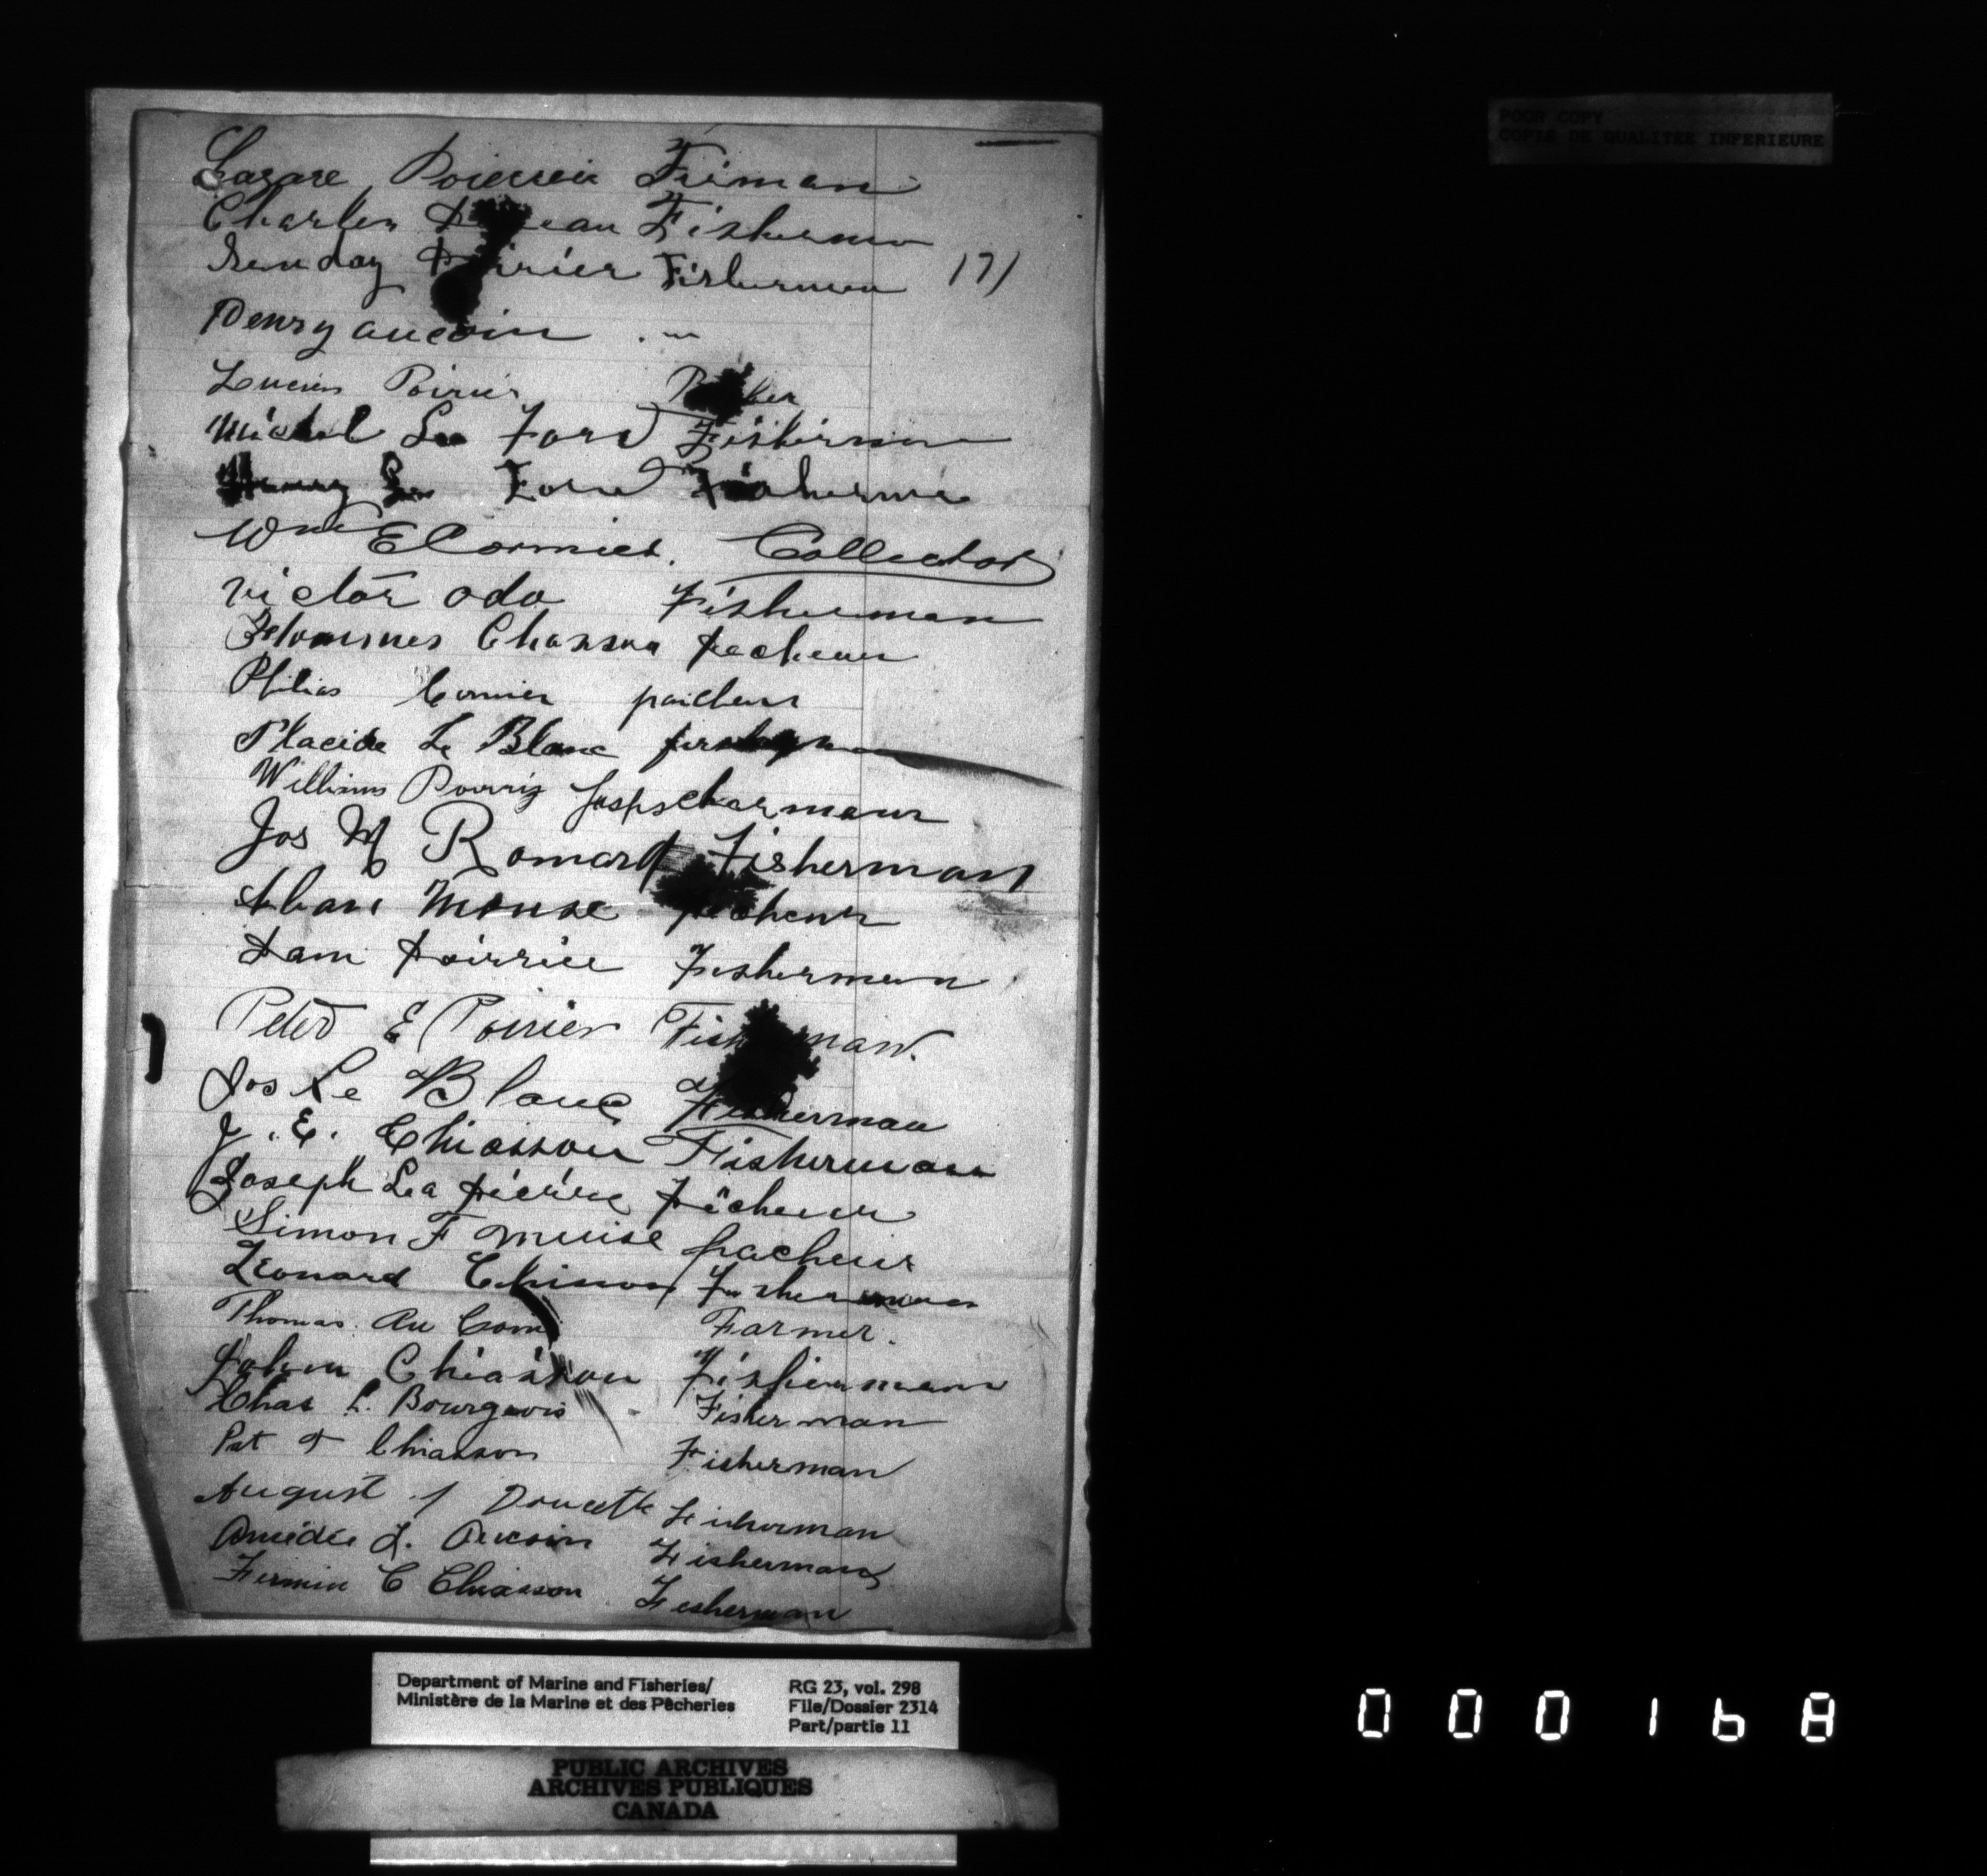 POOR COPY
COPIE DE QUALITEE INFERIEURE
Lazare Poirier Fisman
Charles Fisherman
Poirier Fisherman 171
Henry aucoin
Lucien Poirier
Michel Le Ford Fisherman
Le Ford Fisherman
Wm E Cormier. Collector
victor odo Fisherman
Chasson pecheur
Philias Cormier paicheur
Placide Le Blanc
William
Jos M Romard Fisherman
Mouse pecheur
Sam Poirrier Fisherman
Peter E Poirier Fisherman.
Jos Le Blanc Fisherman
J. E. Chiasson Fisherman
Joseph La pierre pêcheur
Simon F muise pacheur
Leonard Chisson Fisherman
Thomas Au Coin Farmer.
John Chiasson Fisherman
Chas L. Bourgeois Fisherman
Pat Chiasson Fisherman
August J Doucette Fisherman
Amédée L. Aucoin Fisherman
Firmin C Chiasson Fesherman
Department of Marine and Fisheries/ RG 23, vol. 298
Ministère de la Marine et des Pêcheries File/Dossier 2314
Part/partie 11
PUBLIC ARCHIVES
ARCHIVES PUBLIQUES
CANADA
000168